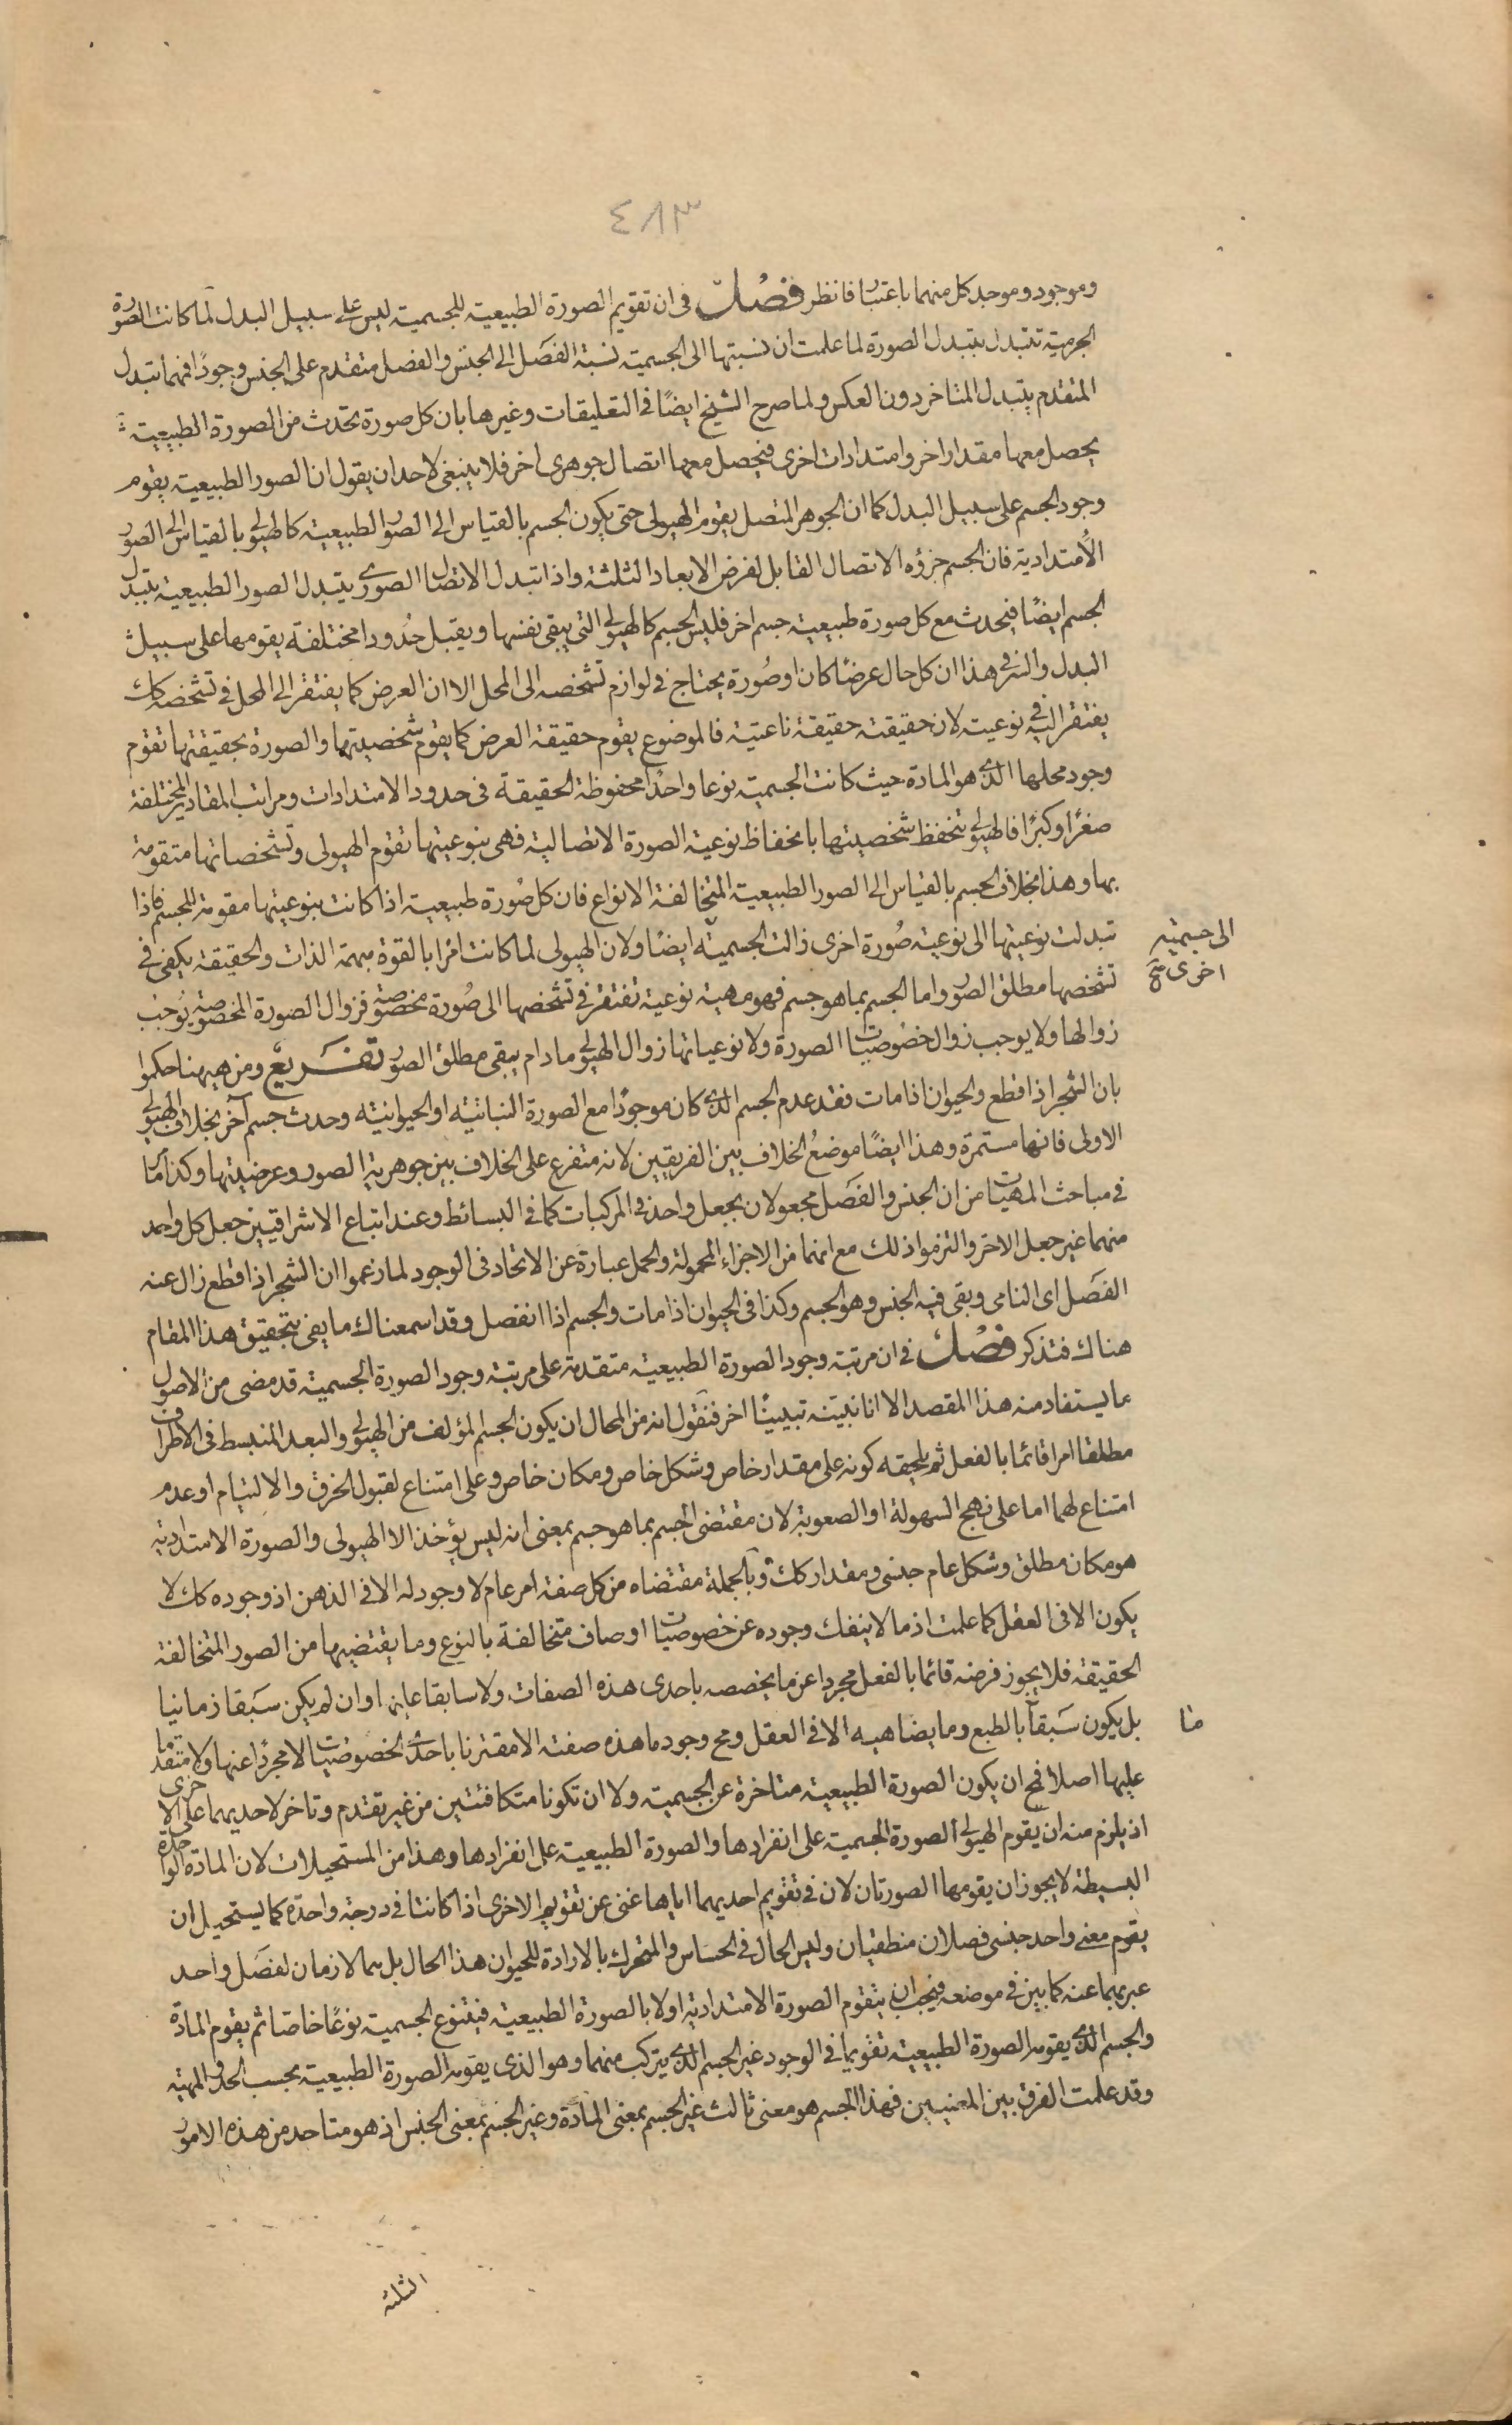 ٤٨٣
وموجود وموجد كل منهما باعتبار فانظر فصل في ان تقويم الصورة الطبيعية للجسمية ليس على سبيل البدل لما كانت الصورة
الجرمية تتبدل بتبدل الصورة لما علمت ان نسبتها الى الجسمية نسبة الفصل الى الجنس والفصل متقدم على الجنس وجودًا فمهما تبدل
المتقدم يتبدل المتاخر دون العكس ولما صرح الشيخ ايضًا في التعليقات وغيرها بان كل صورة تحدث من الصورة الطبيعية
يحصل معها مقدار اخر وامتدادات اخرى فيحصل معها اتصال جوهرى اخر فلا ينبغى لاحد ان يقول ان الصور الطبيعية يقوم
وجود الجسم على سبيل البدل كما ان الجوهر المتصل يقوم الهيولى حتى يكون الجسم بالقياس الى الصور الطبيعية كالهيولى بالقياس الى الصور
الأمتدادية فان الجسم جزؤه الاتصال القابل لفرض الابعاد الثلثة واذا تبدل الاتصال الصورى بتبدل الصور الطبيعية يتبدل
الجسم ايضًا فيحدث مع كل صورة طبيعية جسم اخر فليس الجسم كالهيولى التى يبقى نفسها ويقبل حُدودا مختلفة يقومها على سبيل
البدل والسر في هذا ان كل حال عرضًا كان او صُورة يحتاج في لوازم تشخصه الى المحل الا ان العرض كما يفتقر الى المحل في تشخصه كك
يفتقر اليه في نوعيته لان حقيقته حقيقة ناعتية فالموضوع يقوم حقيقة العرض كما يقوم شخصيتها والصورة بحقيقتها تقوم
وجود محلها الذى هو المادة حيث كانت الجسمية نوعا واحدًا محفوظة الحقيقة فى حدود الامتدادات ومراتب المقادير المختلفة
صغرًا وكبرًا فالهيولى تنحفظ شخصيتها بانحفاظ نوعية الصورة الاتصالية فهى بنوعيتها تقوم الهيولى وتشخصاتها متقومة
بها وهذا بخلاف الجسم بالقياس الى الصور الطبيعية المتخالفة الانواع فان كل صُورة طبيعية اذا كانت بنوعيتها مقومة للجسم فاذا
تبدلت نوعيتها الى نوعية صُورة اخرى زالت الجسمية ايضًا ولان الهيولى لما كانت امرًا بالقوة مبهمة الذات والحقيقة يكفى فى
الى جسمية
اخرى صح
تشخصها مطلق الصور واما الجسم بما هو جسم فهو مهية نوعية تفتقر في تشخصها الى صُورة مخصوصة فزوال الصورة المخصوصة يوجب
زوالها ولا يوجب زوال خصوصيات الصورة ولا نوعياتها زوال الهيولى ما دام يبقى مطلق الصور تفريع ومن هيهنا حكموا
بان الشجر اذا قطع والحيوان اذا مات فقد عدم الجسم الذى كان موجودًا مع الصورة النباتية او الحيوانية وحدث جسم آخر بخلاف الهيولى
الاولى فانها مستمرة وهذا ايضًا موضعُ الخلاف بين الفريقين لانه متفرع على الخلاف بين جوهرية الصور وعرضيتها وكذا ما مر
في مباحث المهيات من ان الجنس والفصل مجعولان بجعل واحد في المركبات كما فى البسائط وعند اتباع الاشراقيين جعل كل واحد
منهما غير جعل الاخر والتزموا ذلك مع انهما من الاجزاء المحمولة والحمل عبارة عن الاتحاد فى الوجود لما زعموا ان الشجر اذا قطع زال عنه
الفصَل اى النامى وبقى فيه الجنس وهو الجسم وكذا فى الحيوان اذا مات والجسم اذا انفصل وقد اسمعناك ما يفى بتحقيق هذا المقام
هناك فتذكر فصل في ان مرتبة وجود الصورة الطبيعية متقدمة على مرتبة وجود الصورة الجسمية قد مضى من الاصول
ما يستفاد منه هذا المقصد الا انا نبينه تبيينًا اخر فنقول انه من المحال ان يكون الجسم المؤلف من الهيولى والبعد المنبسط فى الاطراف
مطلقا امرا قائما بالفعل ثم يلحقه كونه على مقدار خاص وشكل خاص ومكان خاص وعلى امتناع لقبول الخرق والالتيام او عدم
امتناع لهما اما على نهج السهولة او الصعوبة لان مقتضى الجسم بما هو جسم بمعنى انه ليس يؤخذ الا الهيولى والصورة الامتدادية
هو مكان مطلق وشكل عام جنسى ومقدار كك وبالجملة مقتضاه من كل صفة امر عام لا وجود له الا فى الذهن اذ وجوده كك لا
يكون الا فى العقل كما علمت اذ ما لا ينفك وجوده عن خصوصيات اوصاف متخالفة بالنوع وما يقتضيها من الصور المتخالفة
الحقيقة فلا يجوز فرضه قائما بالفعل مجردا عن ما يخصصه باحدى هذه الصفات ولا سابقا عليها وان لم يكن سَبقا زمانيا
بل يكون سَبقاً بالطبع وما يضاهيه الا فى العقل ومح وجود ما هذه صفته الا مقترنا باحدى الخصوصيات لا مجردًا عنها ولا متقدما
عليها اصلا فمح ان يكون الصورة الطبيعية متاخرة عن الجسمية ولا ان تكونا متكافئتين من غير تقدم وتاخر لاحديهما على الاخرى
اذ يلزم منه ان يقوم الهيولى الصورة الجسمية على انفرادها والصورة الطبيعية على انفرادها وهذا من المستحيلات لان المادة الواحدة
البسيطة لا يجوز ان يقومها الصورتان لان في تقويم احديهما اياها غنى عن تقويم الاخرى اذا كانتا فى درجة واحدة كما يستحيل ان
يقوم معنى واحد جنسى فصلان منطقيان وليس الحال فى الحساس والمتحرك بالارادة للحيوان هذا الحال بل هما لازمان لفصَل واحد
عبر بهما عنه كما بين فى موضعه فيجب ان يتقوم الصورة الامتدادية اولا بالصورة الطبيعية فيتنوع الجسمية نوعًا خاصًا ثم يقوم المادة
والجسم الذى يقومه الصورة الطبيعية تقويما فى الوجود غير الجسم الذى يتركب منهما وهو الذى يقومه الصورة الطبيعية بحسب الحد والمهية
وقد علمت الفرق بين المعنيين فهذا الجسم هو معنى ثالث غير الجسم بمعنى المادة وغير الجسم بمعنى الجنس اذ هو متاحد من هذه الامور
الثلثة